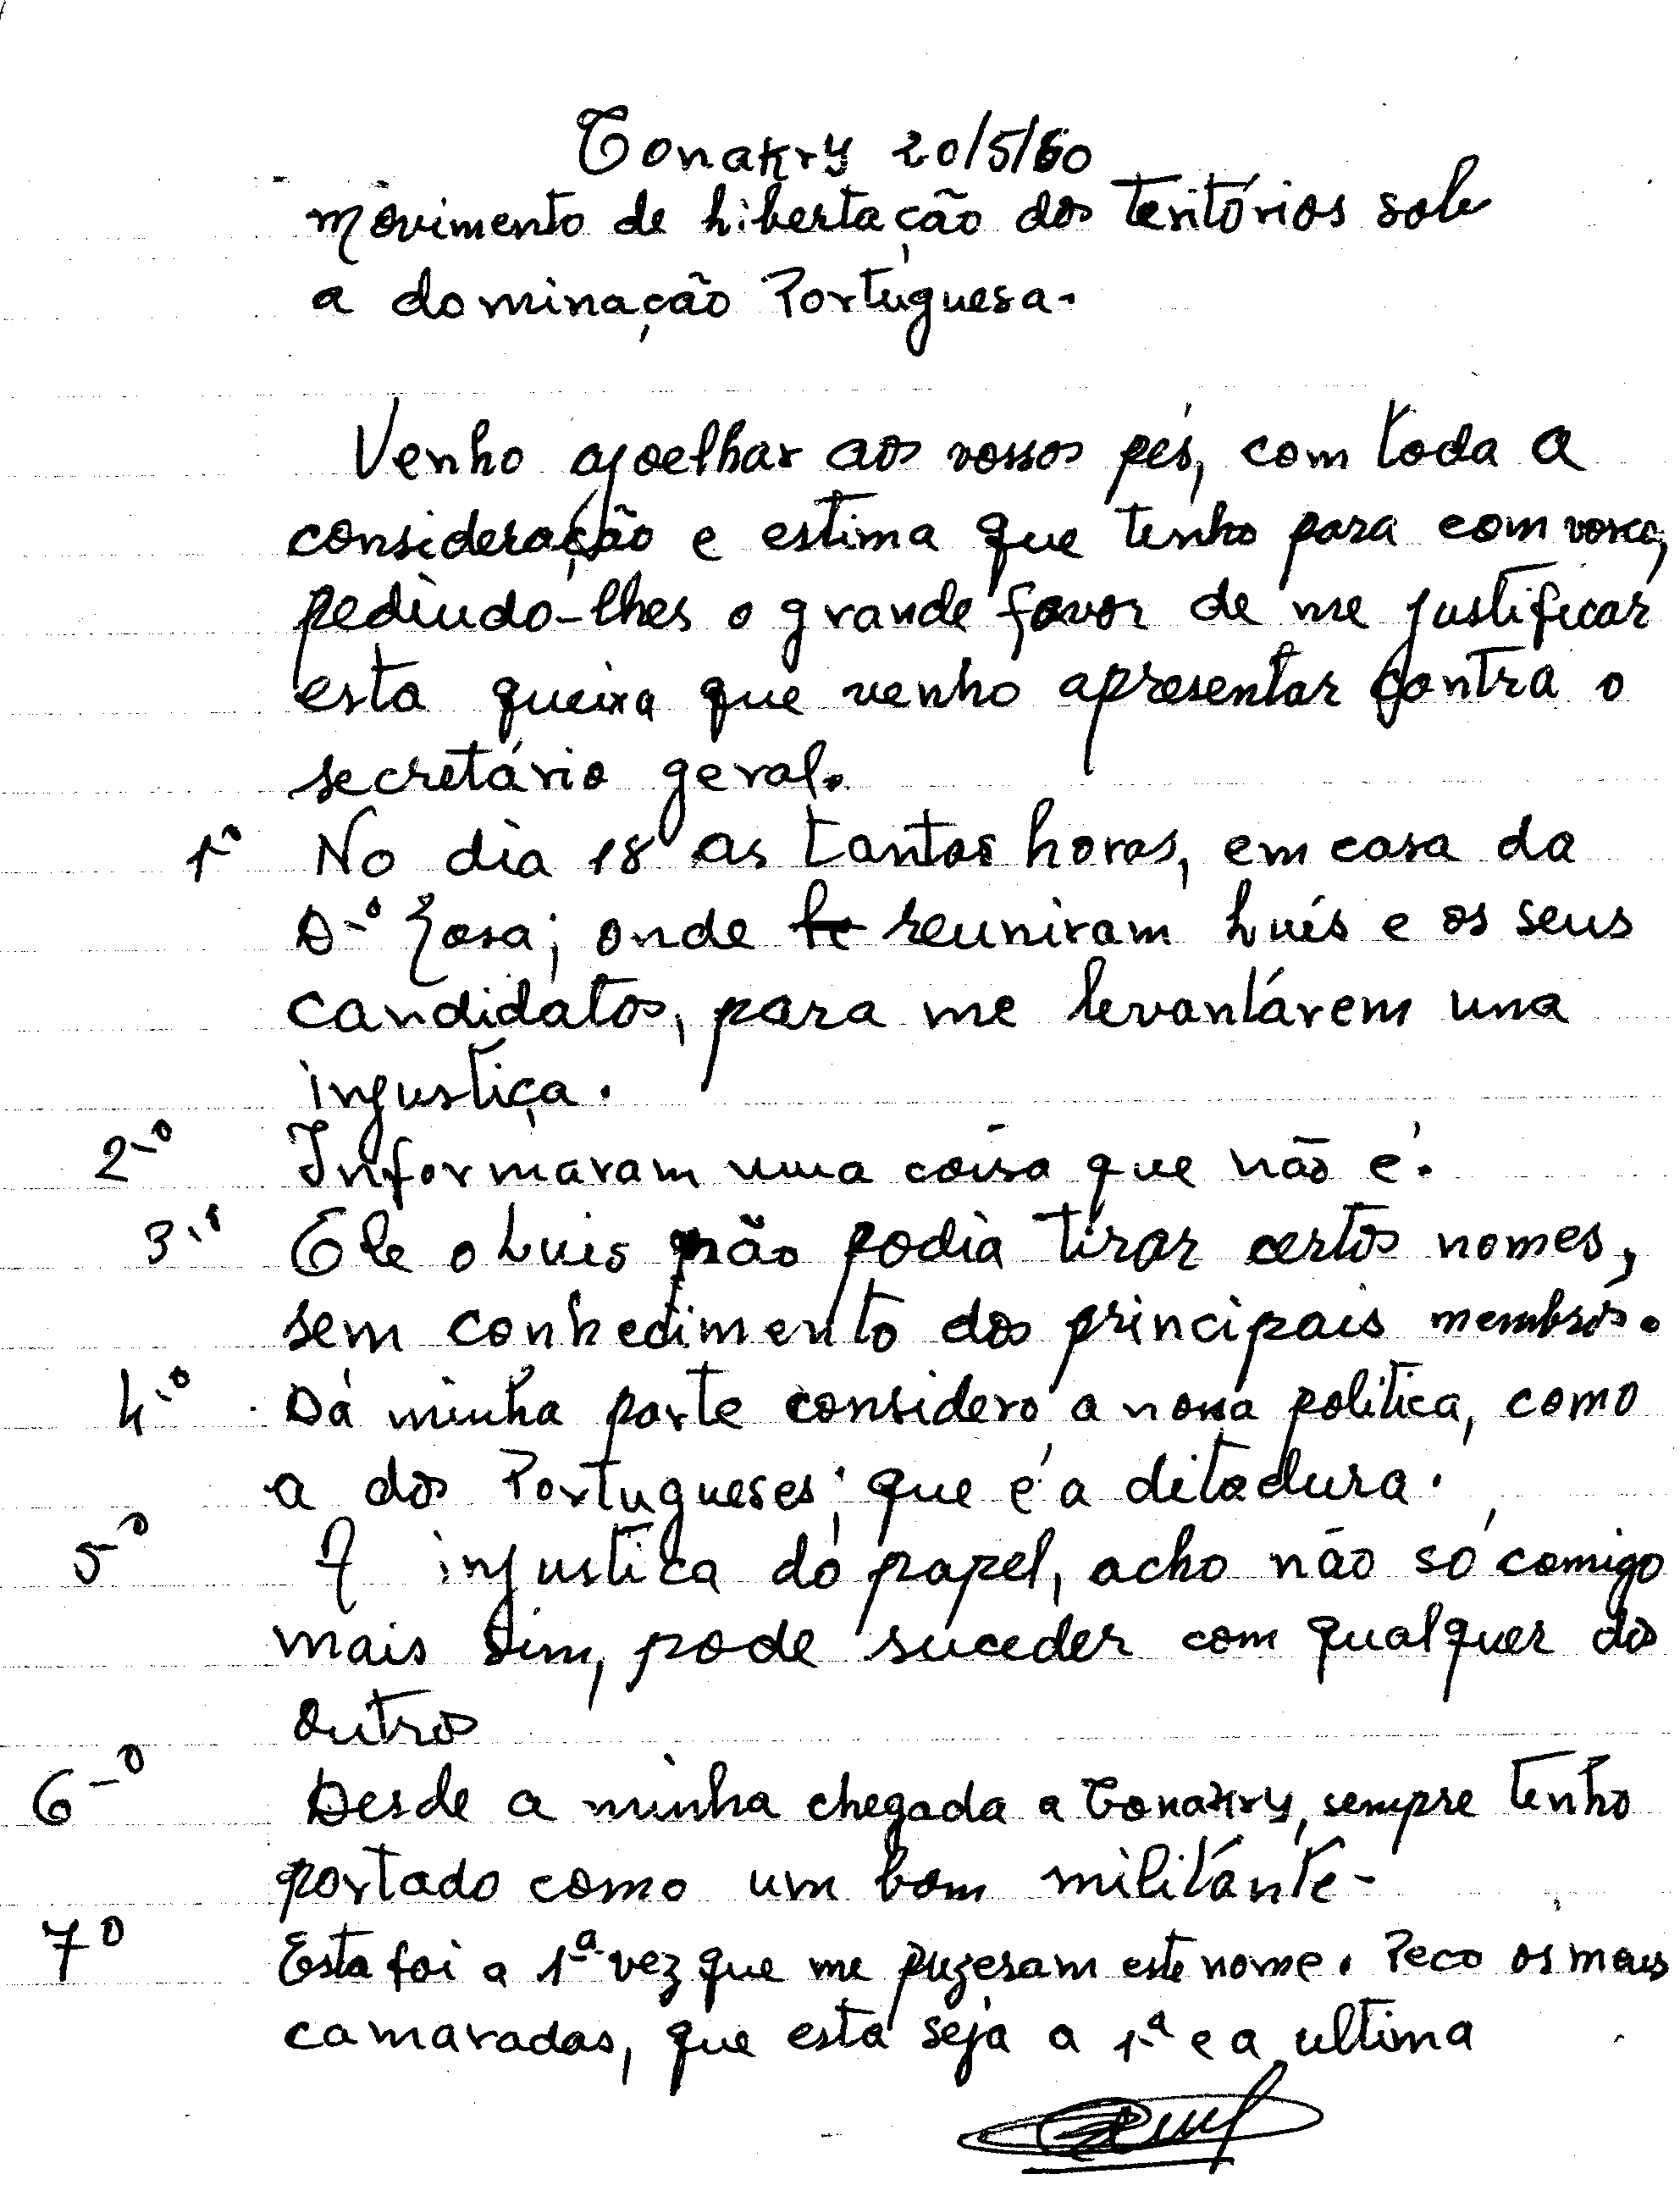 Conakry 20/5/60
Movimento de Libertação dos Teritórios sob
a dominação Portuguesa.
Venho ajoelhar aos vossos pés, com toda a
consideração e estima que tenho para com vosco,
pedindo-lhes o grande favor de me justificar
esta queixa que venho apresentar contra o
secretário geral.
1º No dia 18 as tantas horas, em casa da
D.ª Zosa; onde reuniram Luís e os seus
candidatos, para me levantárem uma
injustiça.
2º Informaram uma coisa que não é.
3º Ele o Luis não podia tirar certos nomes,
sem conhecimento dos principais membros.
4º Da minha parte considero a nossa politica, como
a dos Portugueses; que é a ditadura.
5º A injustiça do papel, acho não só comigo
mais sim, pode suceder com qualquer dos
outros
6º Desde a minha chegada a Conakry, sempre tenho
portado como um bom militánte-
7º Esta foi a 1ª vez que me puzeram este nome. Peco os meus
camaradas, que esta seja a 1ª e a ultima